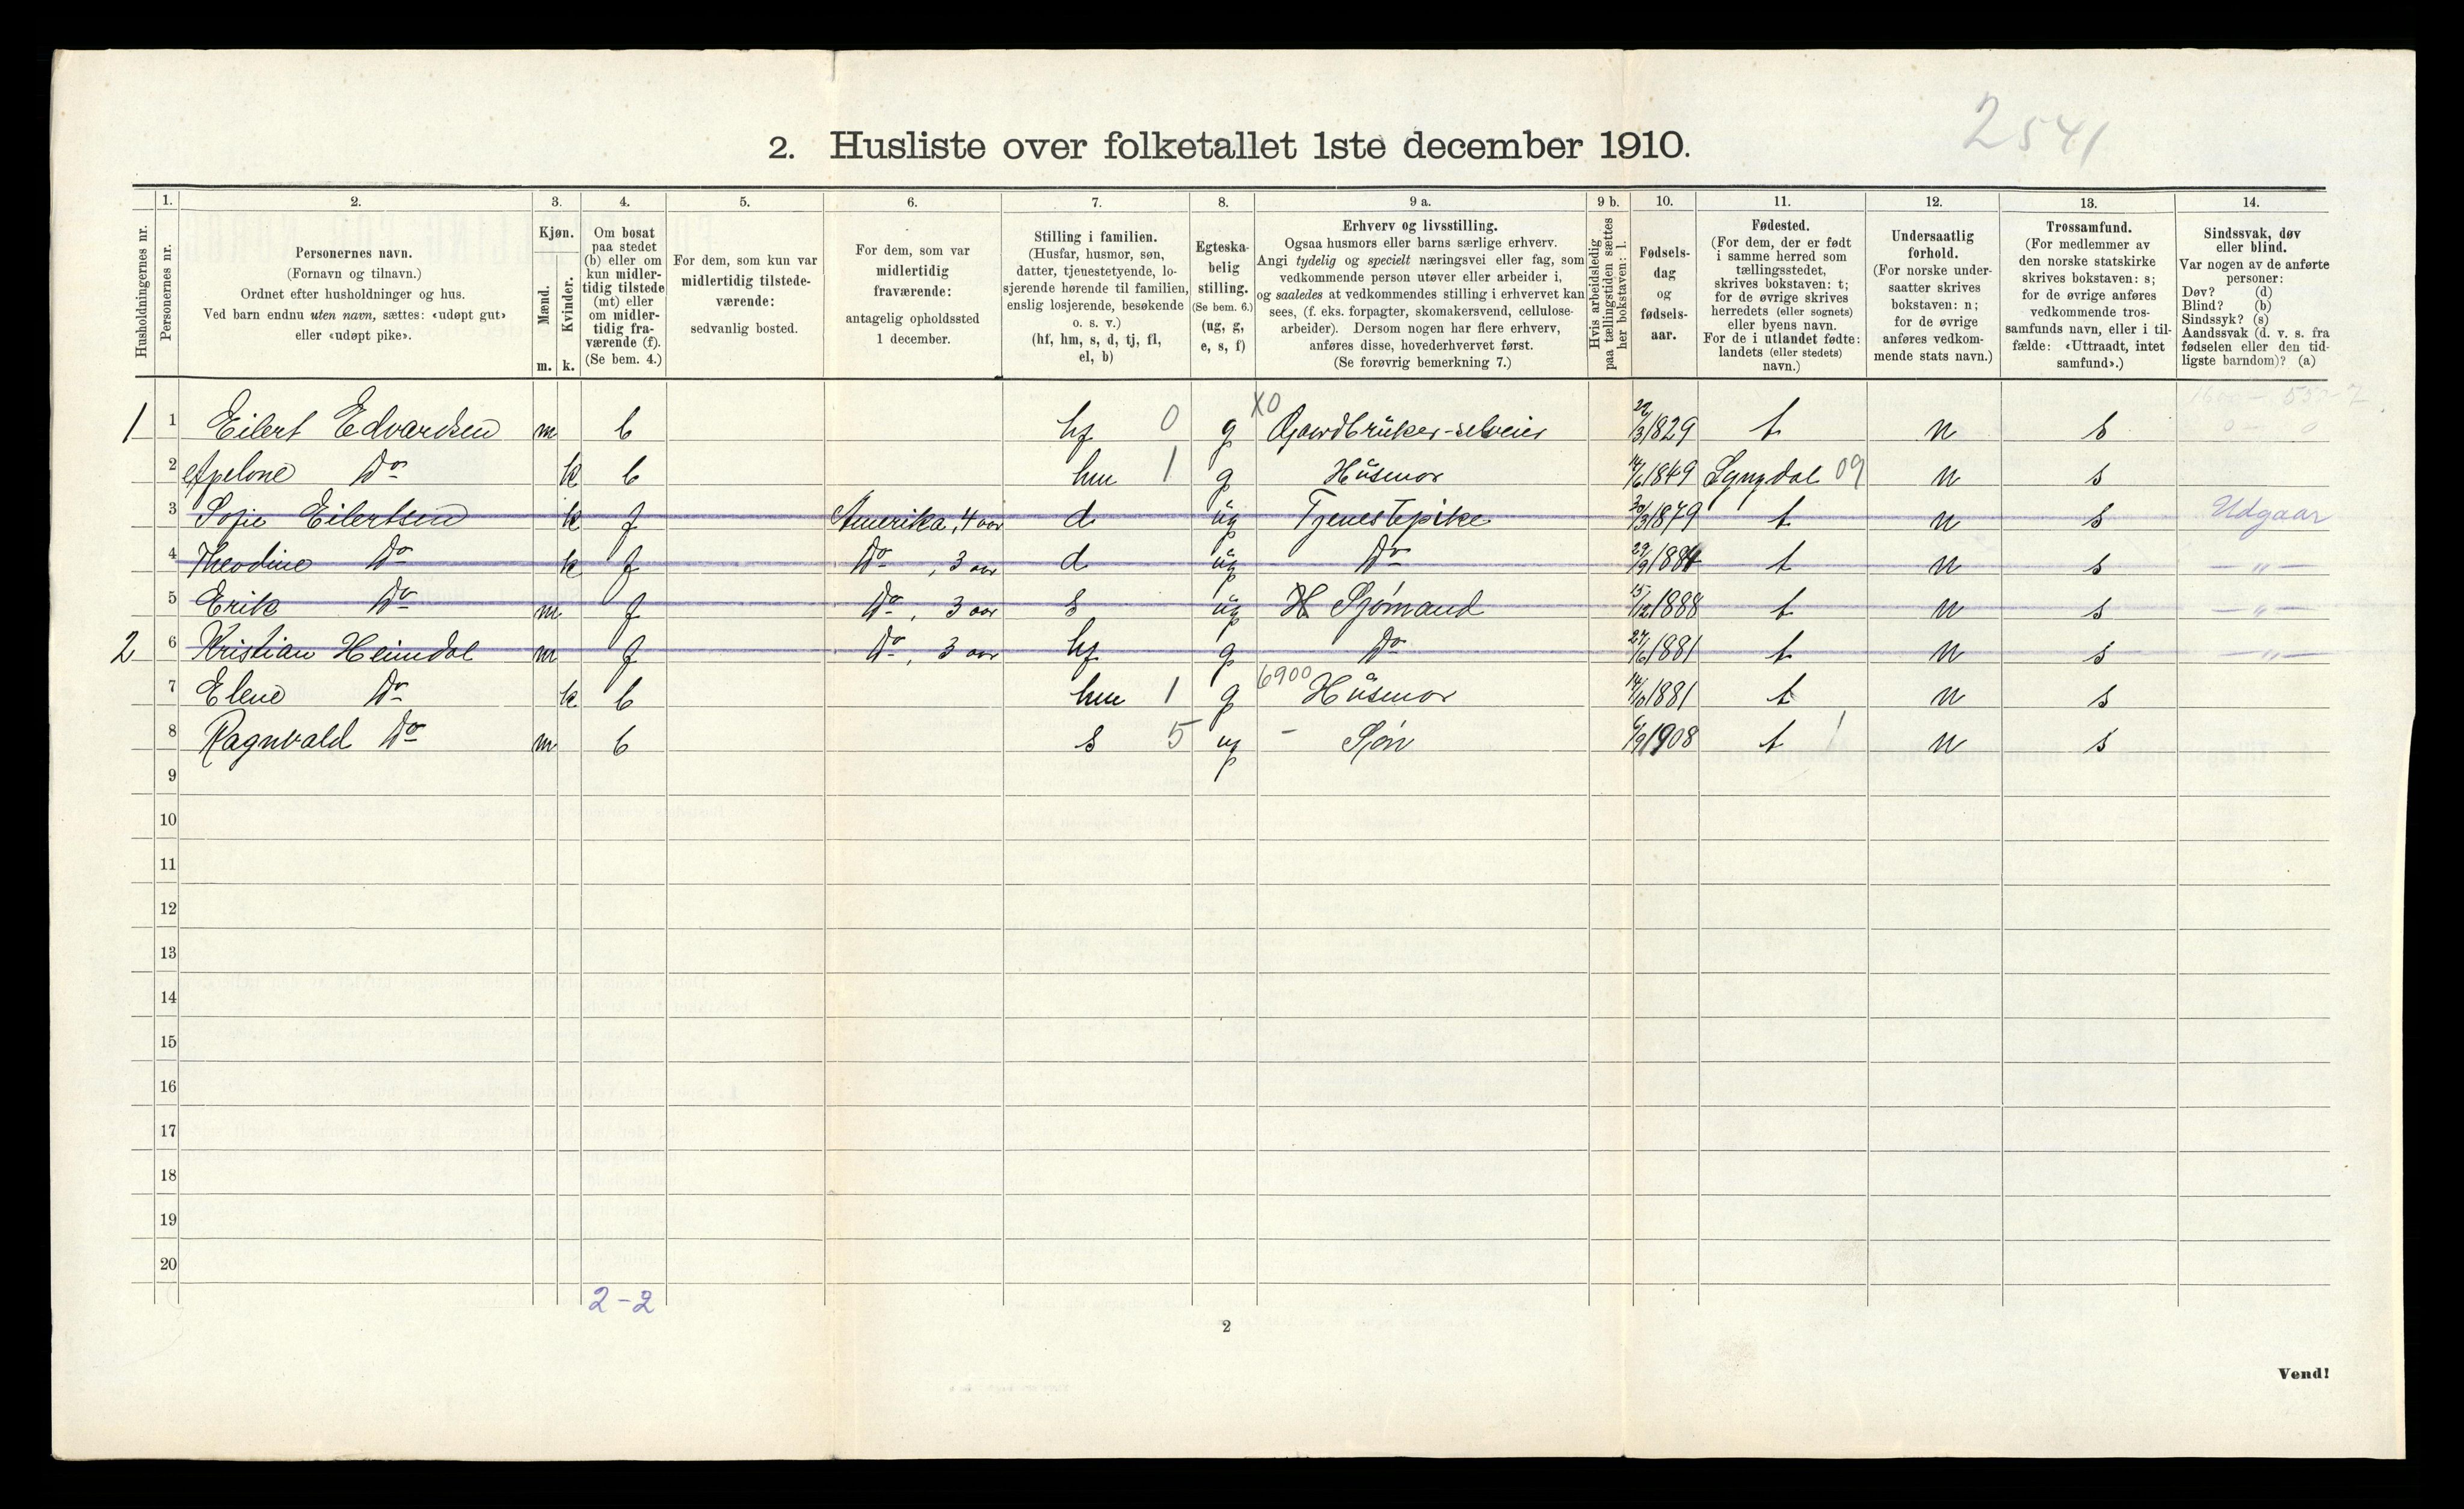 2541
2. Husliste over folketallet 1ste december 1910.
Husholdningernes nr.
1. Personernes nr.
2. Personernes navn. (Fornavn og tilnavn.) Ordnet efter husholdninger og hus. Ved barn endnu uten navn, sættes: «udøpt gut» eller «udøpt pike».
3. Kjøn. Mænd. m. Kvinder. k.
4. Om bosat paa stedet (b) eller om kun midlertidig tilstede (mt) eller om midlertidig fraværende (f). (Se bem. 4.)
5. For dem, som kun var midlertidig tilstedeværende: sedvanlig bosted.
6. For dem, som var midlertidig fraværende: antagelig opholdssted 1 december.
7. Stilling i familien. (Husfar, husmor, søn, datter, tjenestetyende, losjerende hørende til familien, enslig losjerende, besøkende o. s. v.) (hf, hm, s, d, tj, fl, el, b)
8. Egteskabelig stilling. (Se bem. 6.) (ug, g, e, s, f)
9 a. Erhverv og livsstilling. Ogsaa husmors eller barns særlige erhverv. Angi tydelig og specielt næringsvei eller fag, som vedkommende person utøver eller arbeider i, og saaledes at vedkommendes stilling i erhvervet kan sees, (f. eks. forpagter, skomakersvend, cellulosearbeider). Dersom nogen har flere erhverv, anføres disse, hovederhvervet først. (Se forøvrig bemerkning 7.)
9 b. Hvis arbeidsledig paa tællingstiden sættes her bokstaven: l.
10. Fødselsdag og fødselsaar.
11. Fødested. (For dem, der er født i samme herred som tællingsstedet, skrives bokstaven: t; for de øvrige skrives herredets (eller sognets) eller byens navn. For de i utlandet fødte: landets (eller stedets) navn.)
12. Undersaatlig forhold. (For norske undersaatter skrives bokstaven: n; for de øvrige anføres vedkommende stats navn.)
13. Trossamfund. (For medlemmer av den norske statskirke skrives bokstaven: s; for de øvrige anføres vedkommende trossamfunds navn, eller i tilfælde: «Uttraadt, intet samfund».)
14. Sindssvak, døv eller blind. Var nogen av de anførte personer: Døv? (d) Blind? (b) Sindssyk? (s) Aandssvak (d. v. s. fra fødselen eller den tidligste barndom)? (a)
1 1 Eilert Edvardsen m b hf 0 g X0 Gaardbruker-selveier /3 1829 t n s
2 Apelone Do k b hm 1 g Husmor 14/6 1849 Lyngdal 09 n s
3 Sofie Eilertsen k f Amerika, 4 aar d ug Tjenestepike 20/3 1879 t n s Udgaar
4 Theodine Do k f Do, 3 aar d ug Do 29/9 1884 t n s — " —
5 Erik Do m f Do, 3 aar s ug Sjømand 15/12 1888 t n s — " —
2 6 Kristian Heimdal m f Do, 3 aar hf g Do 27/6 1881 t n s — " —
7 Elene Do k b hm 1 g 6900 Husmor 14/10 1881 t n s
8 Ragnvald Do m b s 5 ug - Søn 6/9 1908 t 1 n s
9
10
11
12
13
14
15
16
17
18
19
20
2-2
2
Vend!